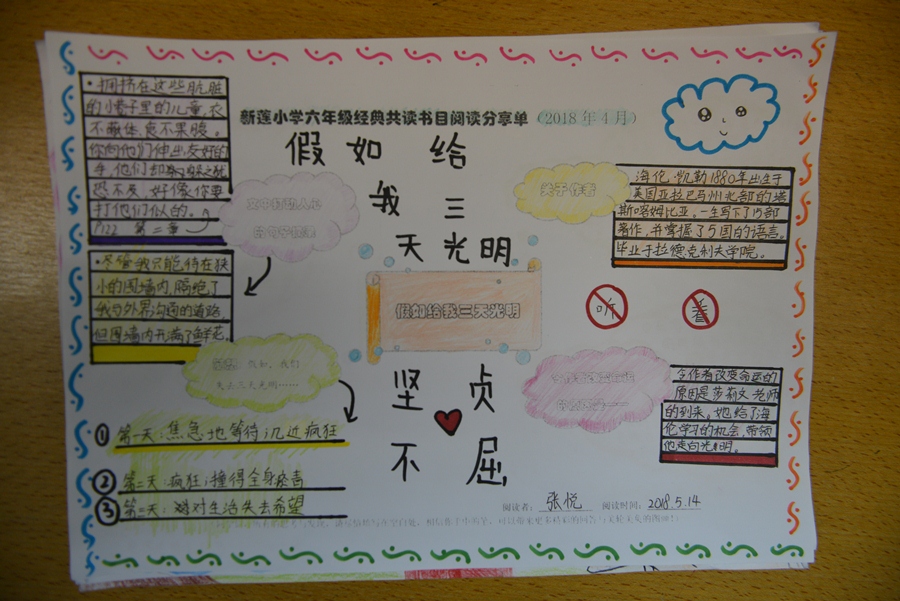 新莲小学六年级经典共读书目阅读分享单（2018年4月）
假如 给
我 三
天光明
·拥挤在这些肮脏
的小巷子里的儿童,衣
不蔽体,食不果腹。
你向他们伸出友好的
手,他们却
恐不及,好像你要
打他们似的。
P122 第二章
文中打动人心
的句子我摘
·尽管我只能待在狭
小的围墙内,隔绝了
我与外界沟通的道路,
但围墙内开满了鲜花
关于作者
海伦·凯勒1880年出生于
美国亚拉巴马州北部的塔
斯喀姆比亚,一生写下了15部
著作,并掌握了5国的语言。
毕业于拉德克利夫学院。
听
看
假如给我三天光明
假如，我们
失去三天光明……
坚 贞
不 屈
令作者改变命运的
原因是莎莉文老师
的到来。她给了海
伦学习的机会,带领
他走向光明。
① 第一天:焦急地等待,几近疯狂
② 第二天:疯狂;撞得全身疼害
③ 第三天:对生活失去希望
阅读者： 张悦 阅读时间：2018.5.14